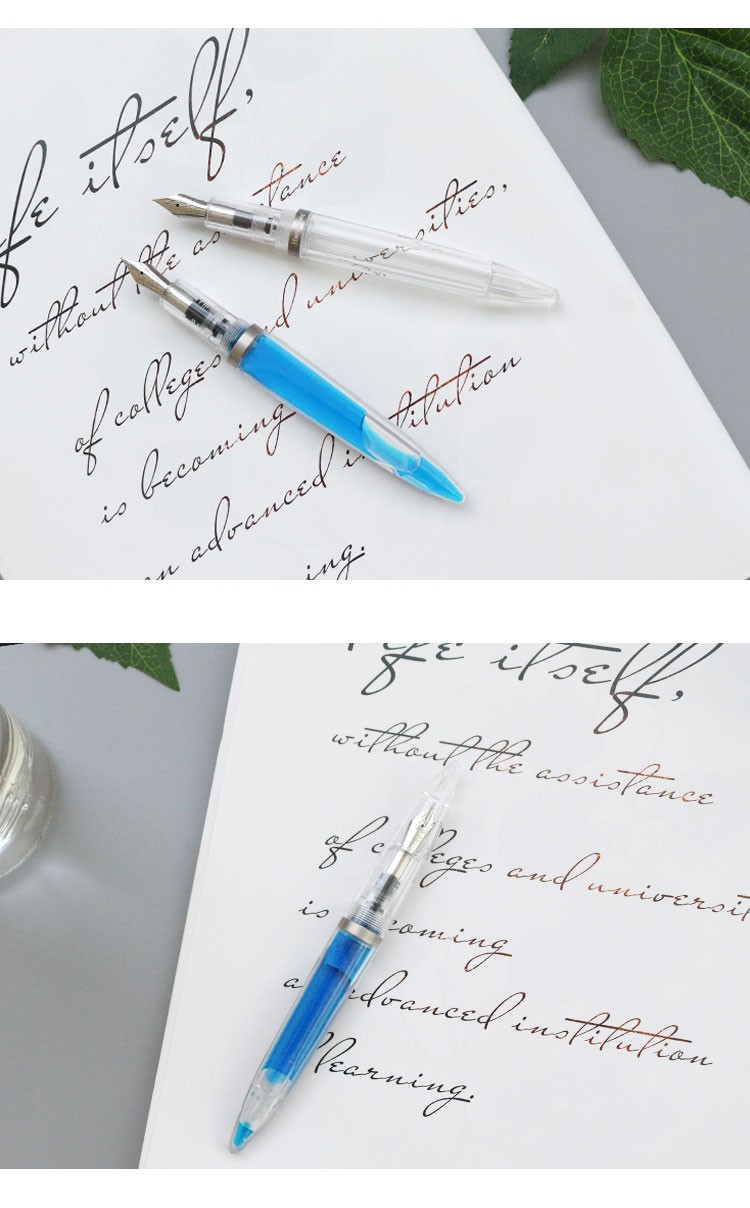 fe itself,
without the as tance
of colleges nd universities,
is becoming
an advanced i titution
ing.
ife itself,
without the assistance
of c leges and universit
is coming
a advanced institution
learning.